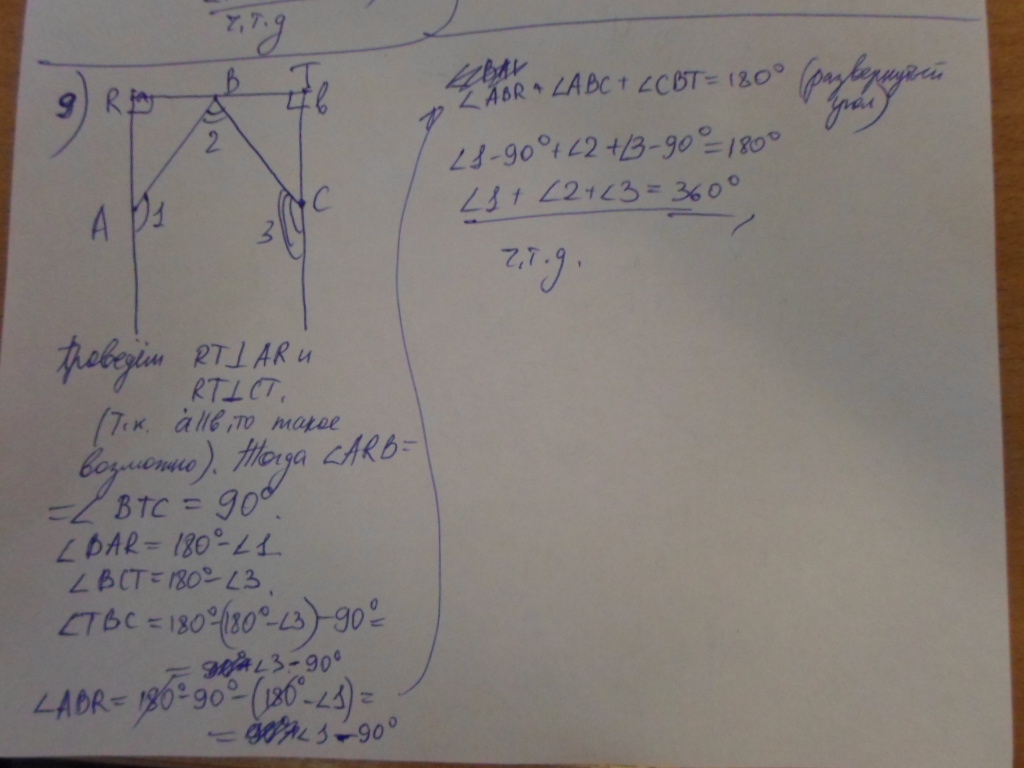 ч.т.д
9)
R B T
в
2
A 1
3 C
Проведём RT⊥AR и
RT⊥CT.
(Т.к. a||в, то такое
возможно). Тогда ∠ARB=
=∠BTC = 90°.
∠BAR = 180°-∠1
∠BCT=180°-∠3.
∠TBC = 180°-(180°-∠3)-90°=
= ∠3-90°
∠ABR= 180°-90°-(180°-∠1)=
= ∠1-90°
∠ABR+∠ABC+∠CBT=180° (развернутый
угол)
∠1-90°+∠2+∠3-90°=180°
∠1+∠2+∠3=360°,
ч.т.д.